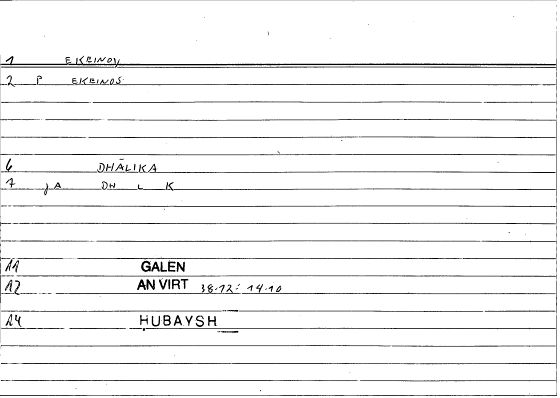 1 EKEINOU
2 P EKEINOS
6 DHĀLIKA
7 jA DH L K
11 GALEN
12 AN VIRT 38.12: 14.10
14 HUBAYSH